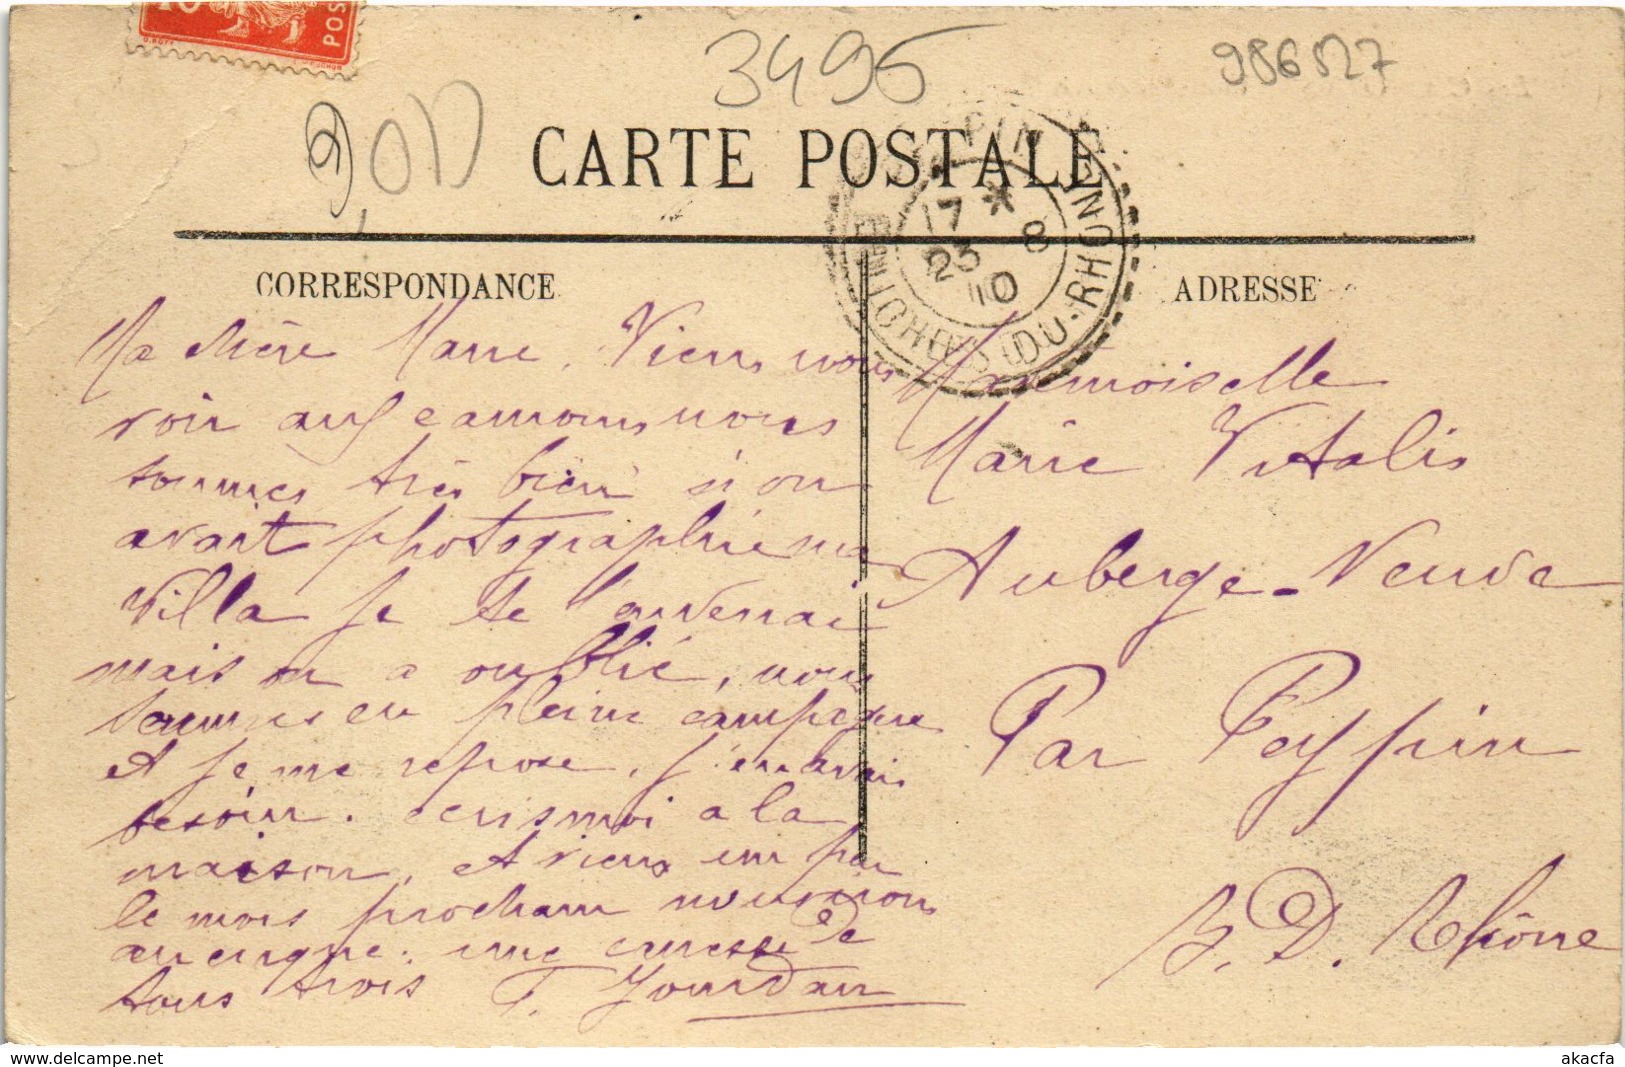 3495
986527
CARTE POSTALE
PEYPIN
BOUCHES DU-RHONE
17 * 8
23 10
CORRESPONDANCE
ADRESSE
Ma chère Marie, Viens nous
voir aux camoins nous
sommes très bien si on
avait photographié ma
villa je te l'enverrai
mais on a oublié, nous
sommes en pleine campagne
et je me repose, j'en avais
besoin. ecris moi a la
maison, et viens un peu
le mois prochain nous irons
au cirque. une caresse de
tous trois T. Jourdan
Mademoiselle
Marie Vitalis
Auberge-Neuve
Par Peypin
B. D. Rhône
www.delcampe.net
akacfa